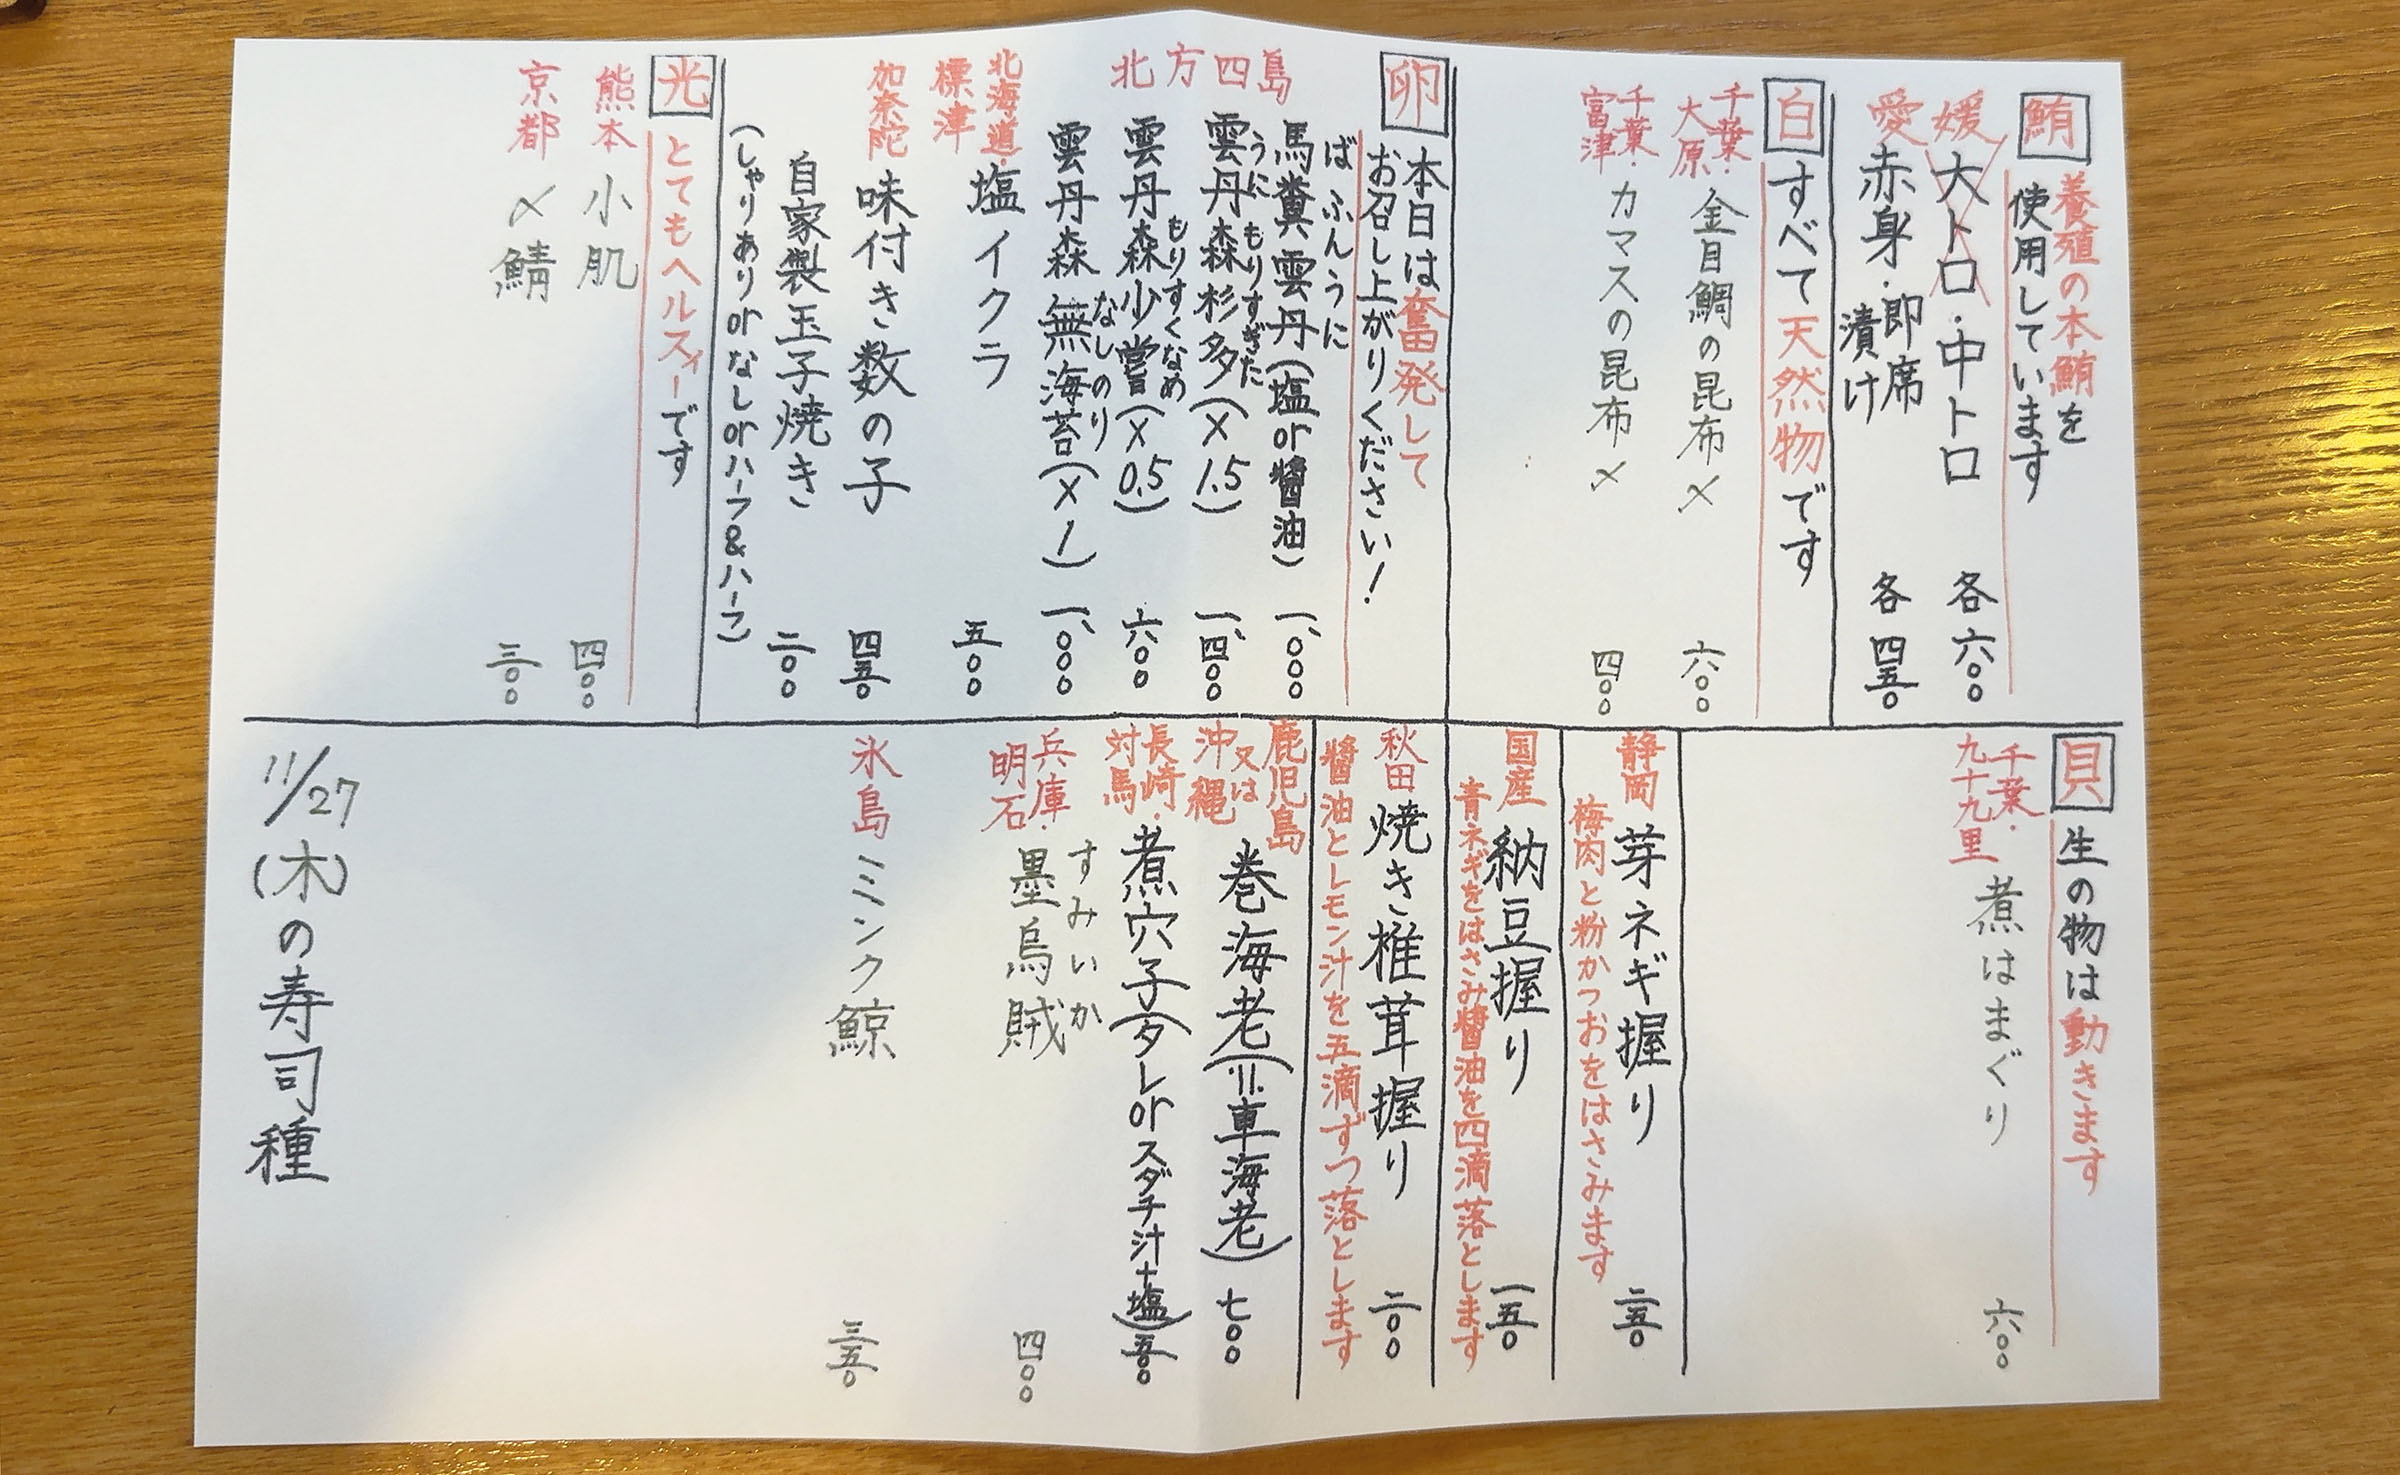 鮪 養殖の本鮪を
使用しています
愛媛
大トロ・中トロ 各六〇〇
赤身・即席漬け 各四五〇
白 すべて天然物です
千葉・大原 金目鯛の昆布〆 六〇〇
千葉・富津 カマスの昆布〆 四〇〇
卵 本日は奮発して
お召し上がりください!
北方四島
ばふんうに
馬糞雲丹(塩or醤油) 一、〇〇〇
うにもりすぎた
雲丹森杉多(×1.5) 一、四〇〇
もりすくなめ
雲丹森少嘗(×0.5) 六〇〇
なしのり
雲丹森無海苔(×1) 一、〇〇〇
北海道・標津 塩イクラ 五〇〇
加奈陀 味付き数の子 四五〇
自家製玉子焼き 二〇〇
(しゃりありorなしorハーフ&ハーフ)
光 とてもヘルスィーです
熊本 小肌 四〇〇
京都 〆鯖 三〇〇
貝 生の物は動きます
千葉・九十九里 煮はまぐり 六〇〇
静岡 芽ネギ握り 二五〇
梅肉と粉かつおをはさみます
国産 納豆握り 一五〇
青ネギをはさみ醤油を四滴落とします
秋田 焼き椎茸握り 二〇〇
醤油とレモン汁を五滴ずつ落とします
鹿児島又は沖縄 巻海老(=車海老) 七〇〇
長崎・対馬 煮穴子(タレorスダチ汁+塩) 五〇〇
兵庫・明石 墨烏賊 四〇〇
すみいか
氷島 ミンク鯨 三五〇
11/27(木)の寿司種